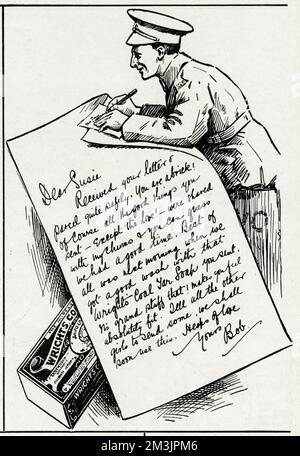 Dear Susie
Received your letter &
parcel quite safely. You are a brick!
Of course all the good things you
sent - Except the last - were shared
with my chums & you can guess
we had a good time. Best of
all was that morning when we
got a good wash with that
Wright's Coal Tar Soap you sent.
My! Grand stuff that! makes you feel
absolutely fit. Tell all the other
girls to send some, we shall
soon use this. Heaps of love
Yours
Bob.
WRIGHT'S CO
alamy
Image ID: 2M3JPM6
www.alamy.com